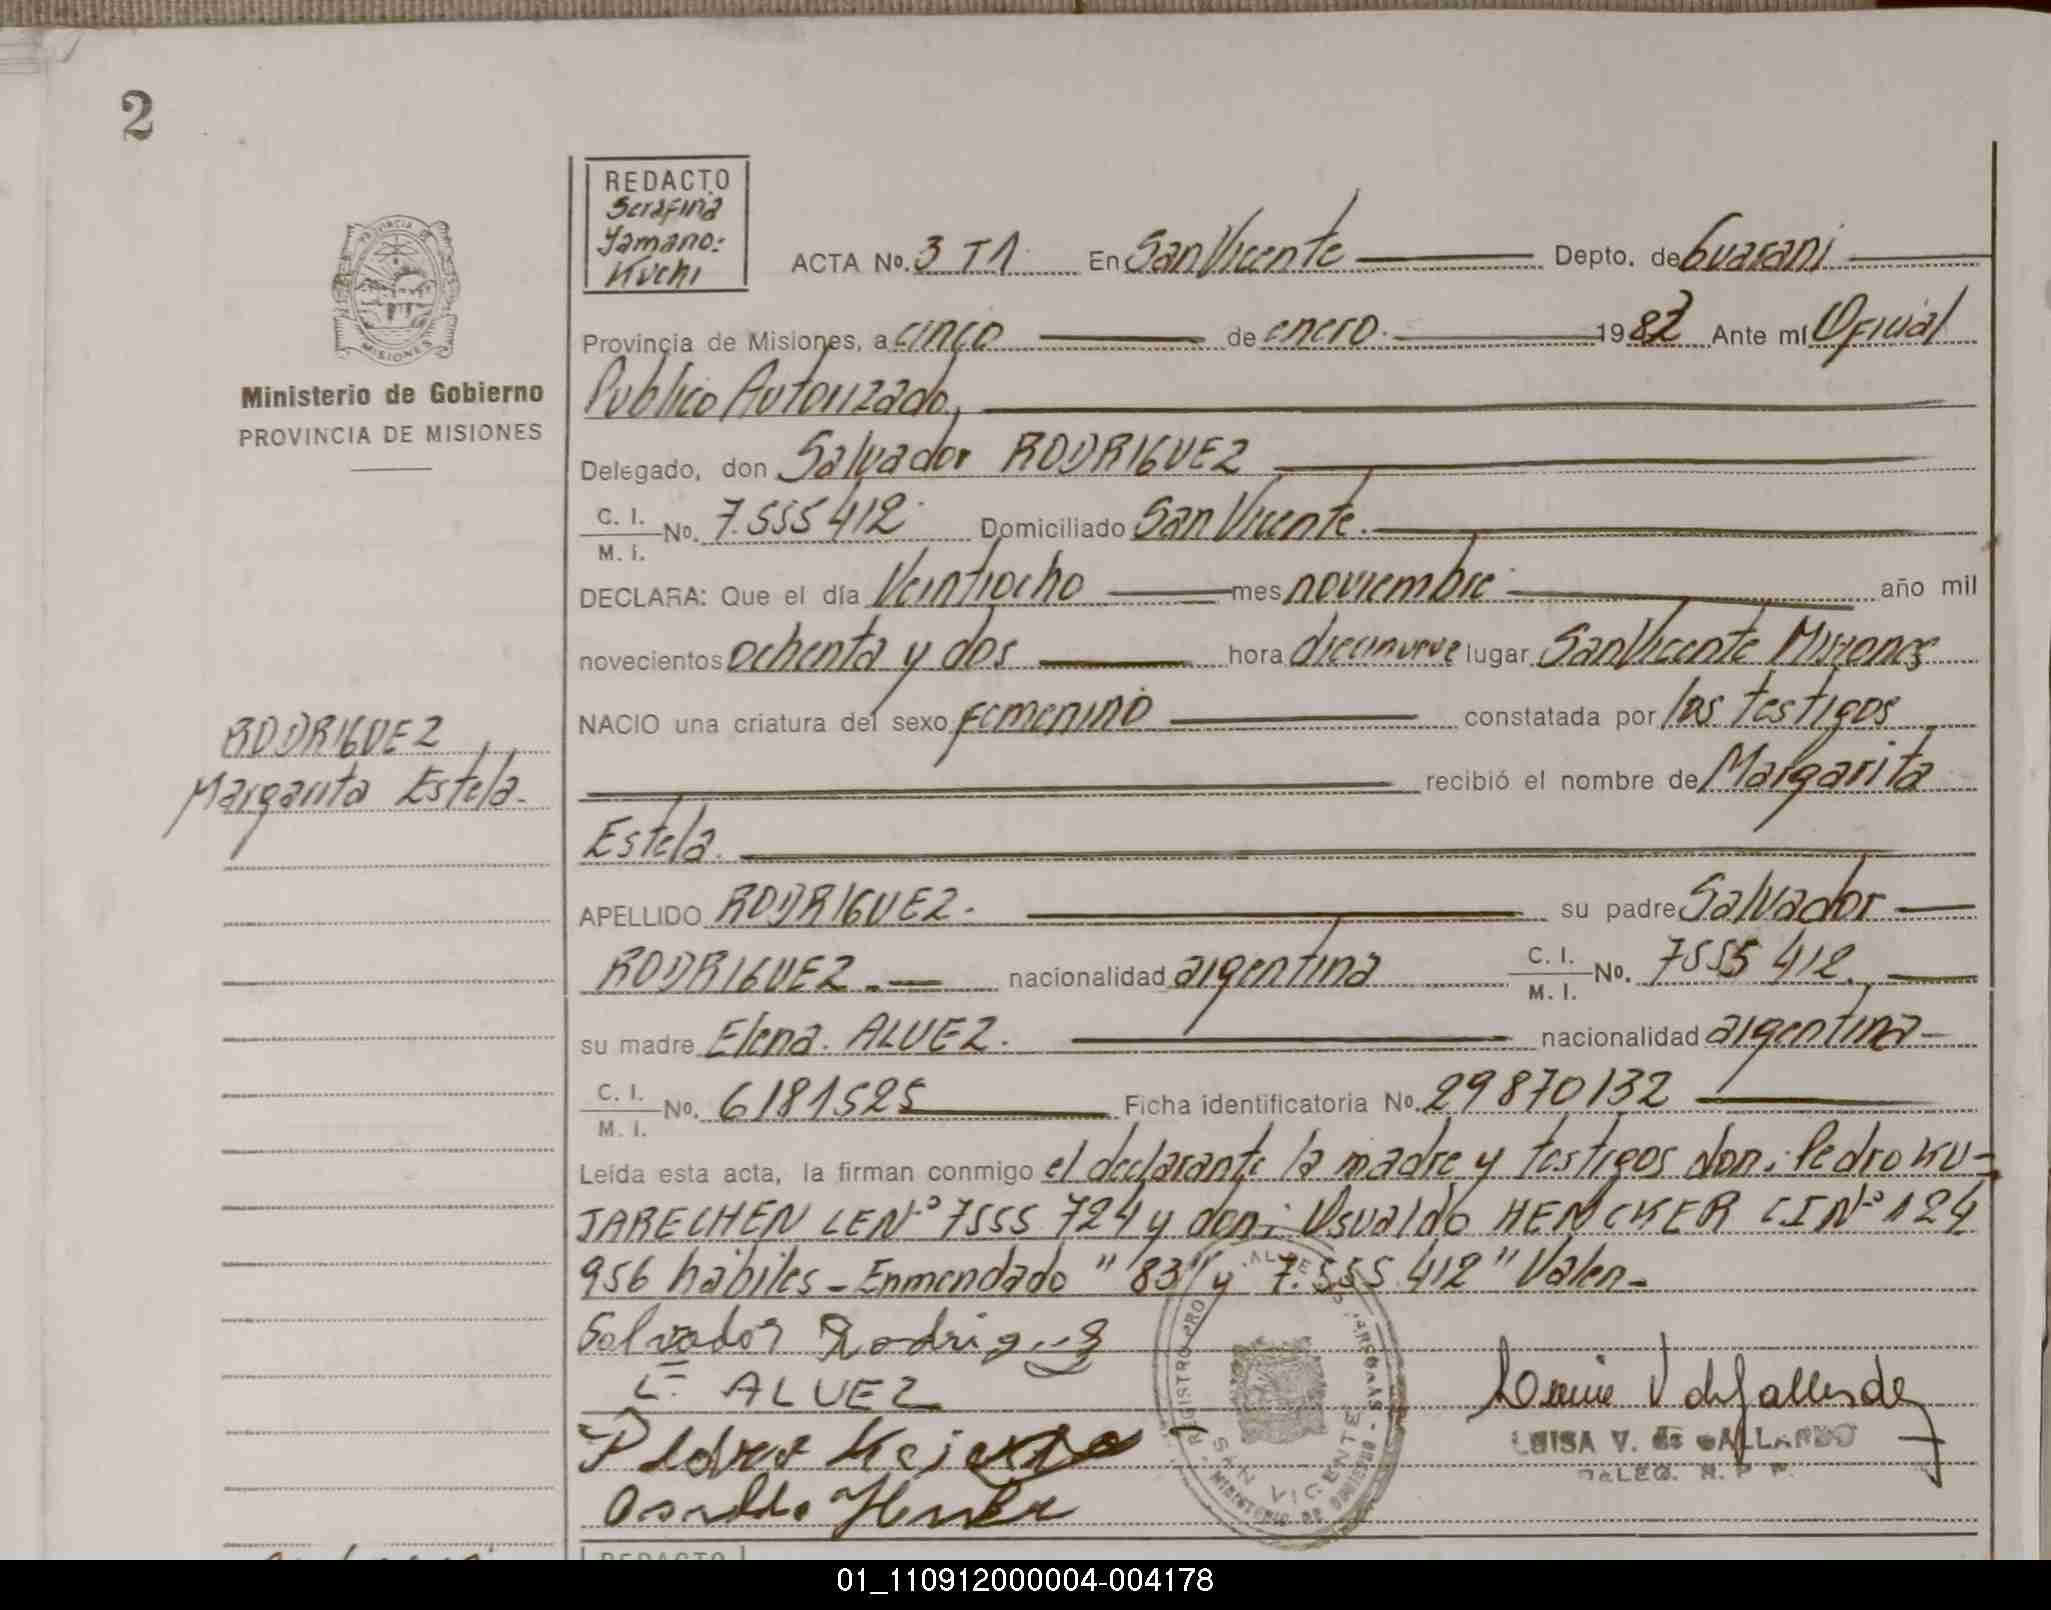 2
REDACTO
Serafina
Yamano:
Kuchi
ACTA No. 3 T1 En San Vicente Depto. de Guarani
Provincia de Misiones, a cinco de enero. 1983 Ante mí Oficial
Publico Autorizado,
Ministerio de Gobierno
PROVINCIA DE MISIONES
Delegado, don Salvador RODRIGUEZ
C. I. M. I. No. 7.555 412 Domiciliado San Vicente.
DECLARA: Que el día Veintiocho mes noviembre año mil
novecientos ochenta y dos hora diecinueve lugar San Vicente Misiones
NACIO una criatura del sexo femenino constatada por los testigos
RODRIGUEZ
Margarita Estela.
recibió el nombre de Margarita
Estela.
APELLIDO RODRIGUEZ. su padre Salvador
RODRIGUEZ. nacionalidad argentina C. I. M. I. No. 7555 412.
su madre Elena. ALVEZ. nacionalidad argentina
C. I. M. I. No. 6181525 Ficha identificatoria No. 29870132
Leída esta acta, la firman conmigo el declarante la madre y testigos don: Pedro KU-
JARECHEN LE Nº 7555 724 y don: Osvaldo HENCKER CI Nº 124
956 habiles - Enmendado "83" y "7.555 412" Valen-
Salvador Rodriguez
E= ALVEZ
Pedro
Osvaldo
LUISA V. de GALLARDO
DELEG. R. P. P.
SAN VICENTE
MINISTERIO DE GOBIERNO
MISIONES
01_110912000004-004178